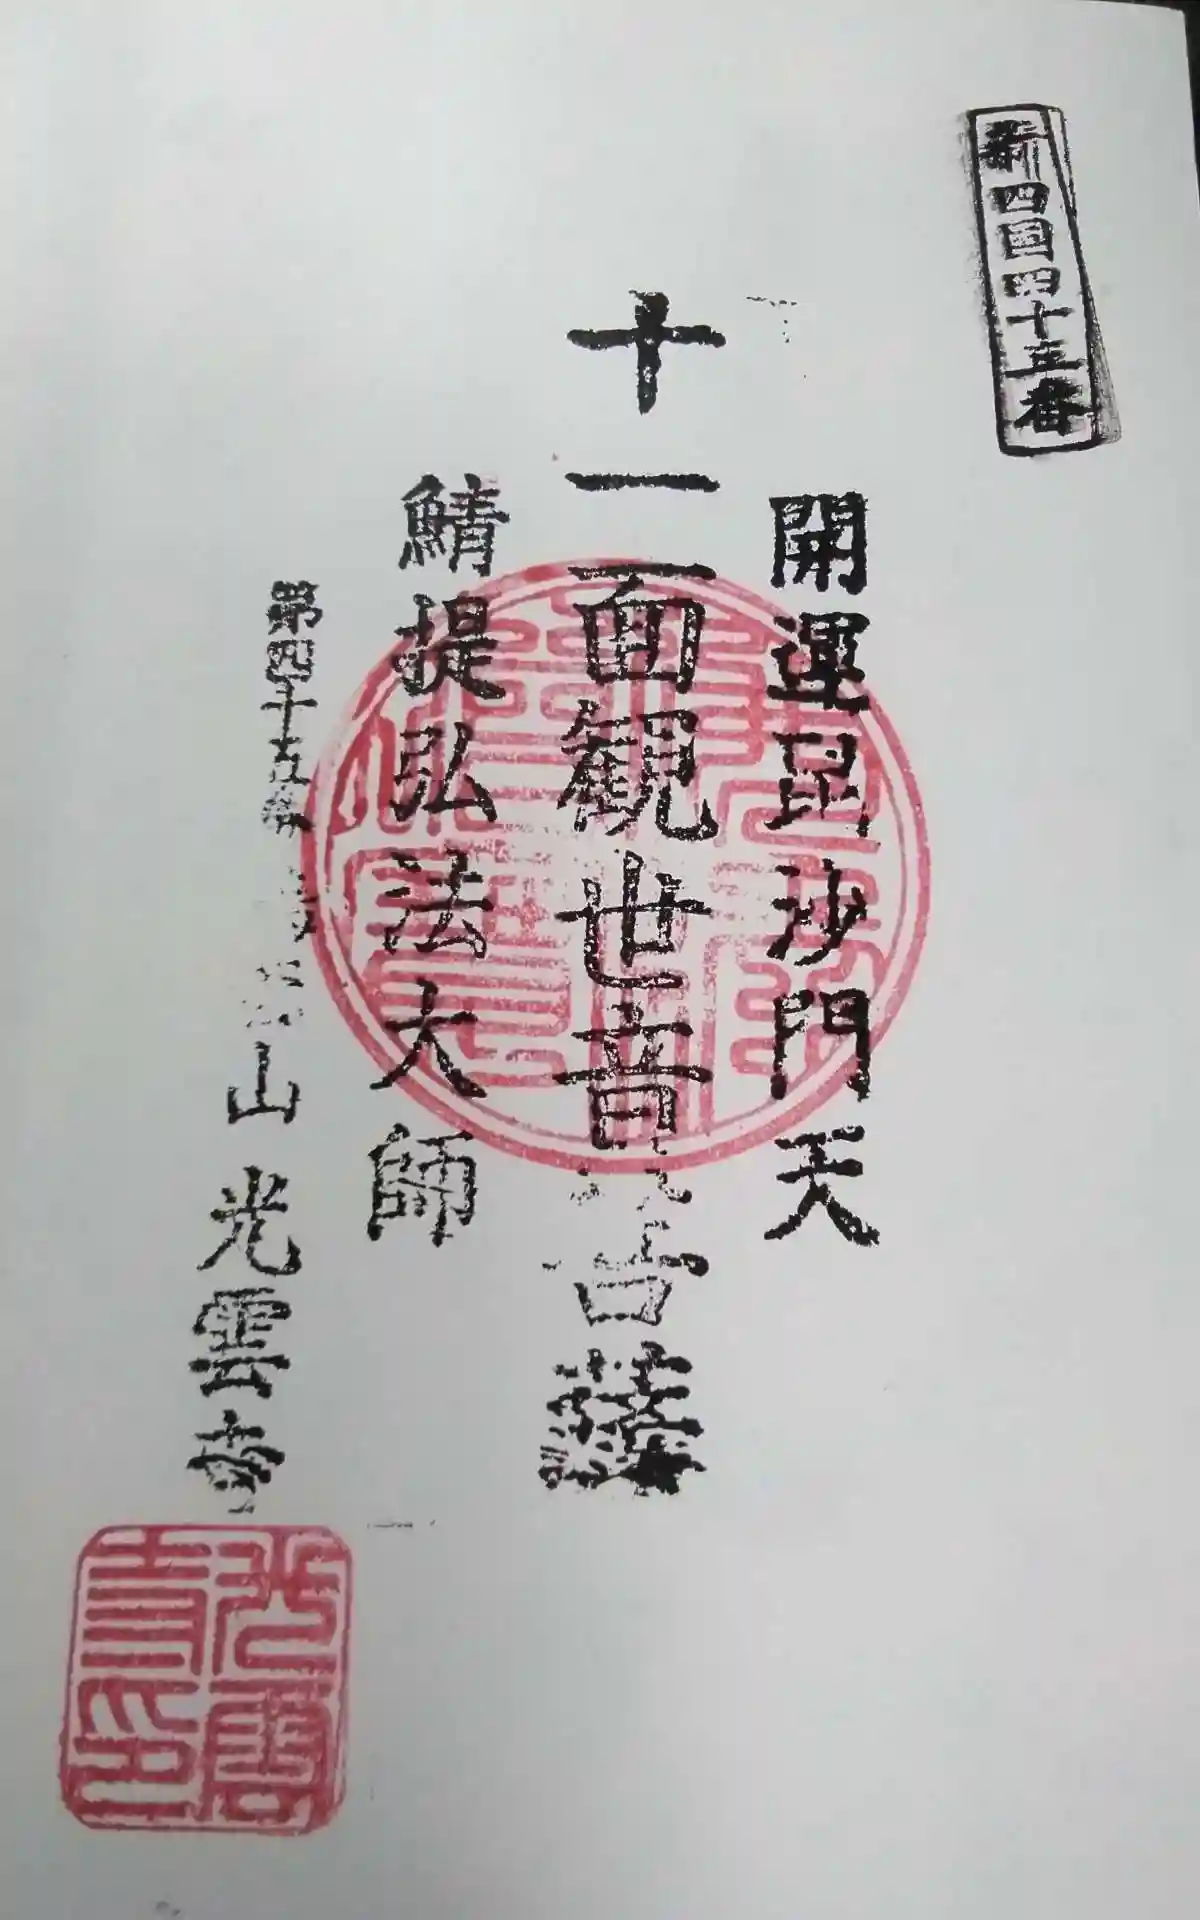 新四国四十五番
開運昆沙門天
十一面観世音菩薩
鯖提弘法大師
第四十五番 山 光雲寺
光雲寺印